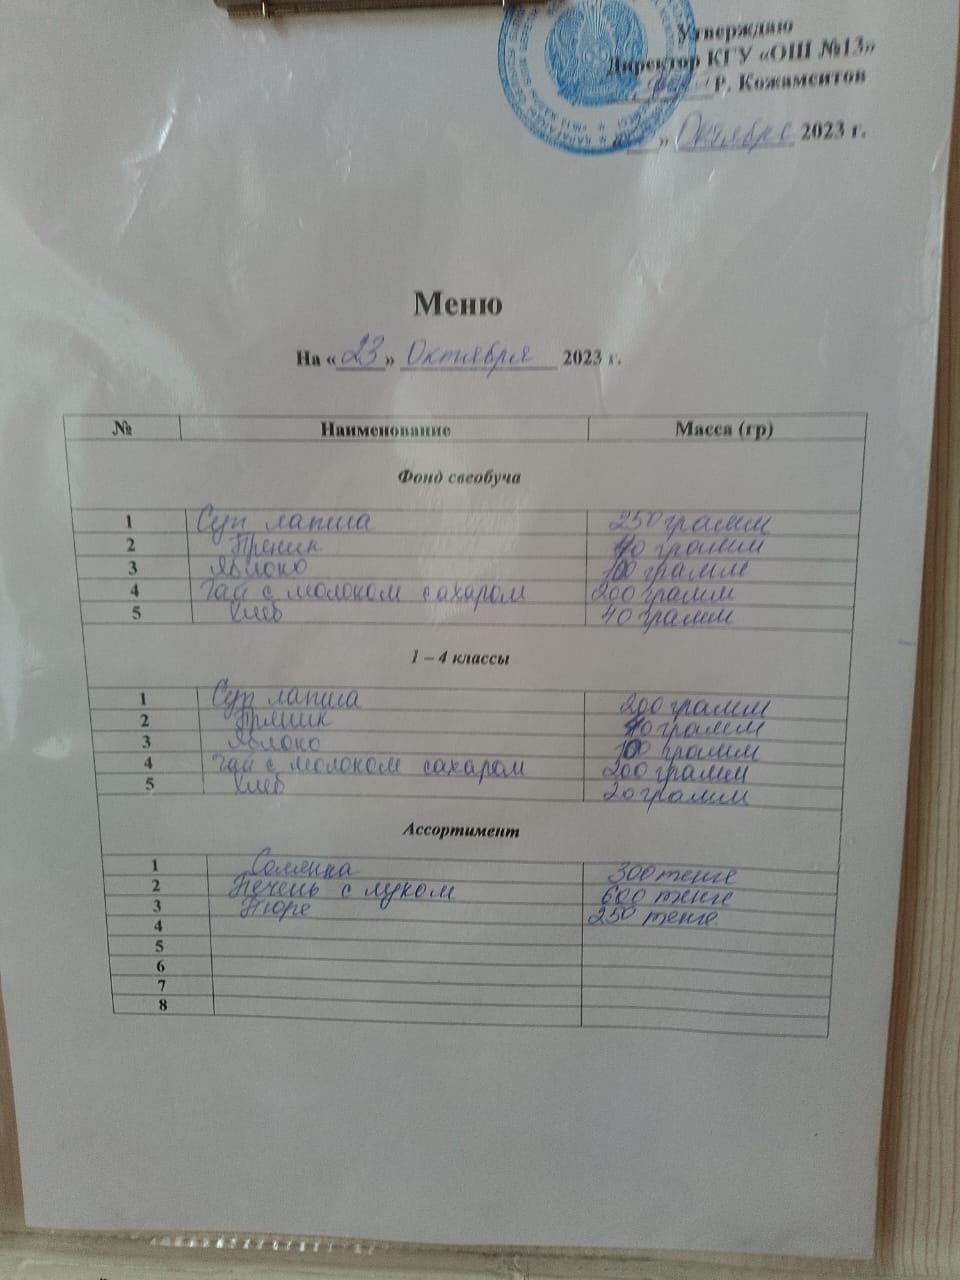 Утверждаю
Директор КГУ «ОШ №13»
Р. Кожаментов
« » Октябре 2023 г.
Меню
На «23» Октября 2023 г.
№ Наименование Масса (гр)
Фонд свеобуча
1 Суп лапша 250 грамм
2 Преник 40 грамм
3 Яблоко 100 грамм
4 Чай с молоком сахаром 200 грамм
5 Хлеб 40 грамм
1 – 4 классы
1 Суп лапша 200 грамм
2 Пряник 40 грамм
3 Яблоко 100 грамм
4 Чай с молоком сахаром 200 грамм
5 Хлеб 20 грамм
Ассортимент
1 Солянка 300 тенге
2 Печень с луком 600 тенге
3 Пюре 250 тенге.
4
5
6
7
8